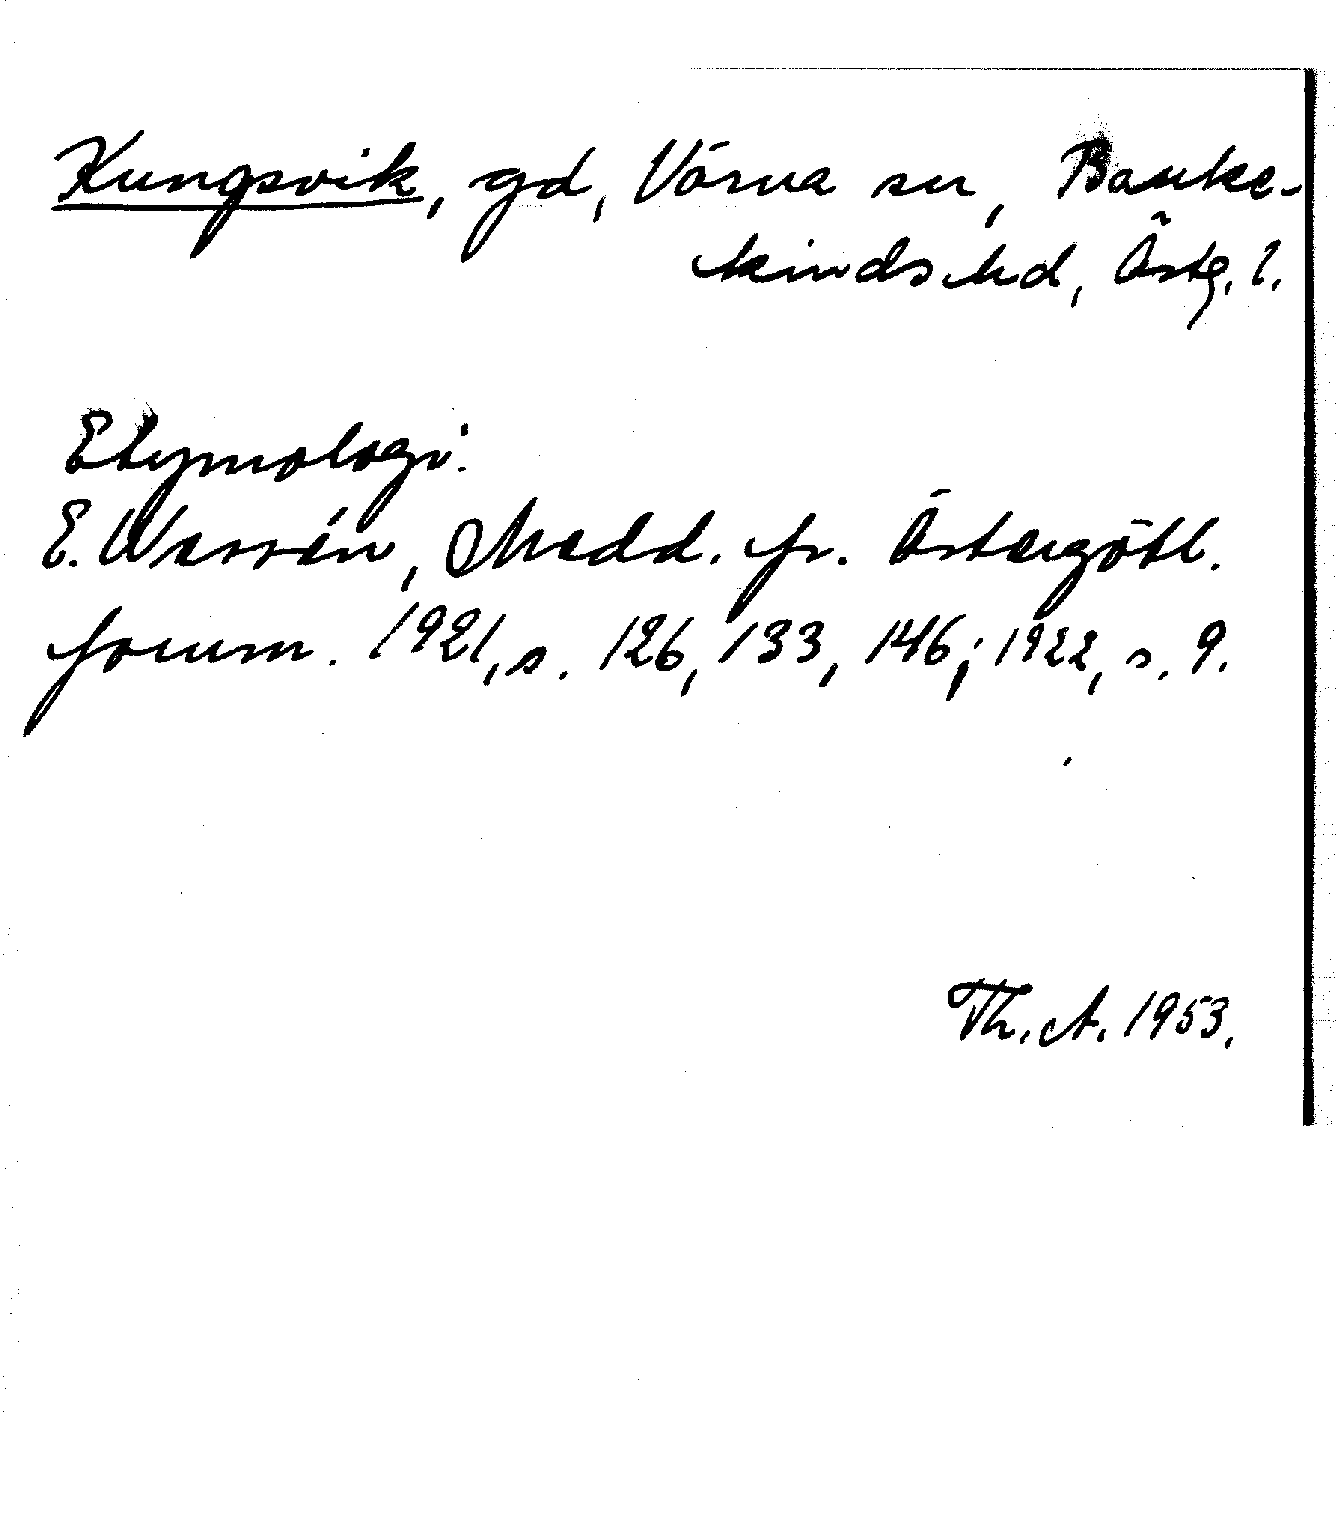 Kungsvik, gd, Vårna sn, Banke-
kinds hd, Östg. l.
Etymologi:
E. Wessén, Medd. fr. Östergötl.
fornm. 1921, s. 126, 133, 146; 1922, s. 9.
Th. A. 1953.